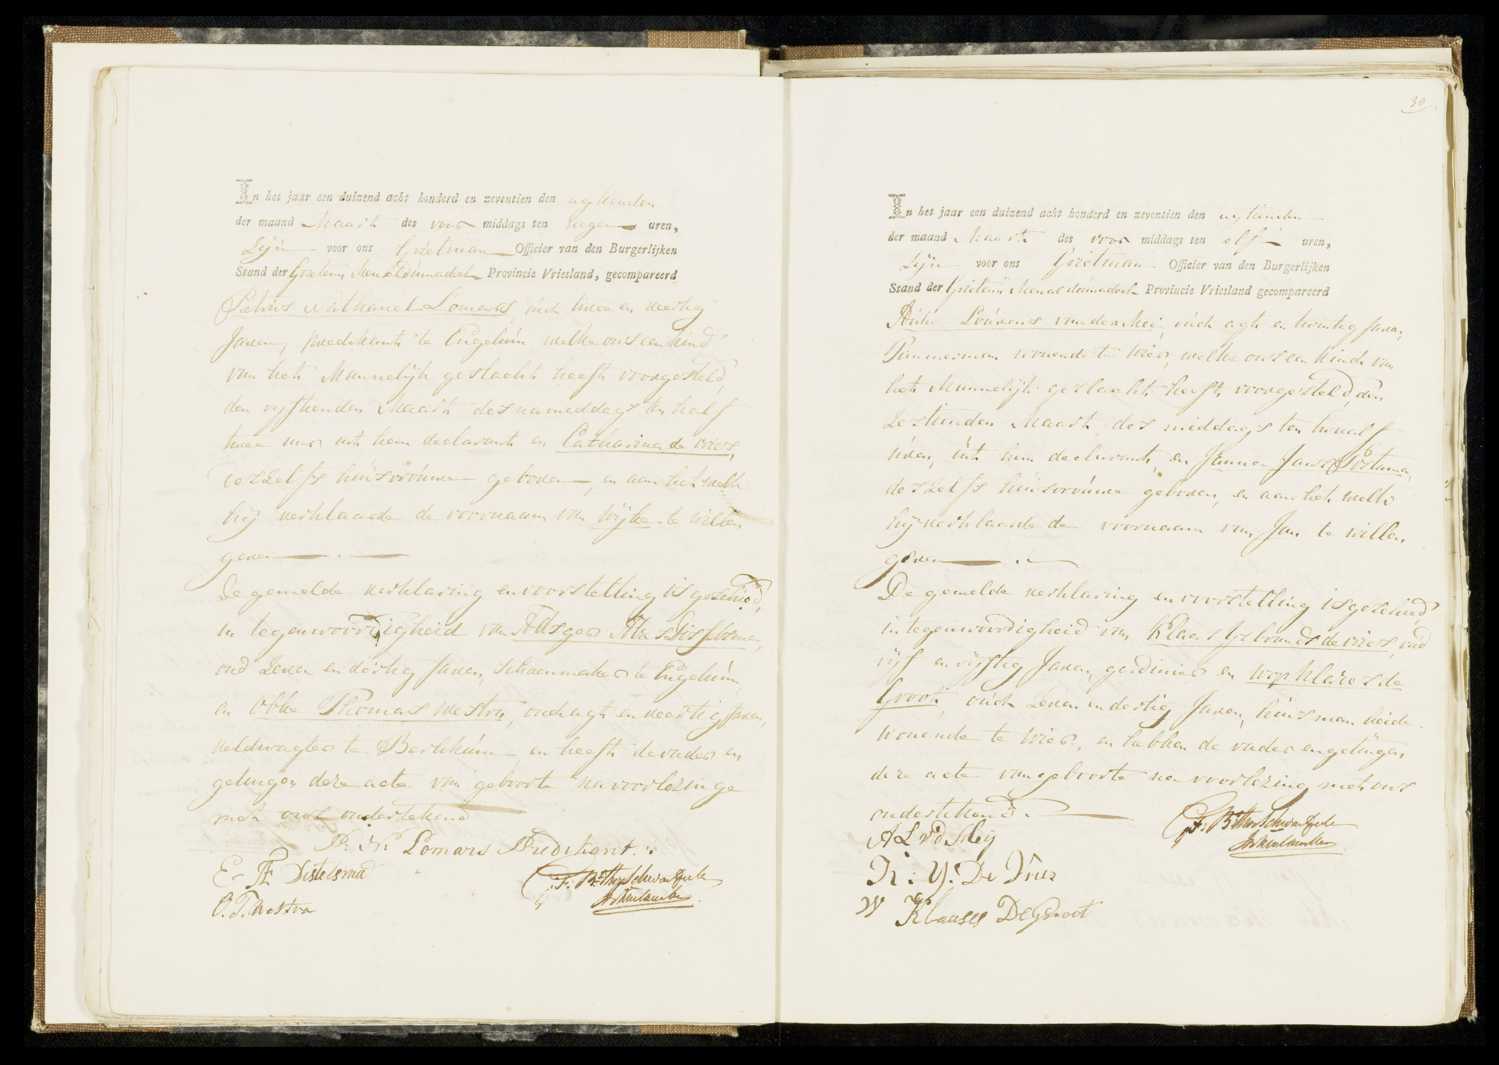 In het jaar een duizend acht honderd en zeventien den agttienden
der maand Maart des voor middags ten negen uren,
Zijn voor ons Grietman Officier van den Burgerlijken
Stand der Grietenij Menaldumadeel Provincie Vriesland, gecompareerd
Petrus Nathanael Lomars oud twee en veertig
Jaren, predikant te Engelum welke ons een kind
van het Mannelijk geslacht heeft voorgesteld,
den vijftienden Maart des nameddags ten half
twee uur uit hem declarant en Catharina de Vries,
deszelfs huisvrouwe geboren, en aan het welk
hij verklaarde de voornaam van Wijtze te willen
geven
De gemelde verklaring en voorstelling is geschied,
in tegenwoordigheid van Distelsma,
oud zeven en dertig Jaren, schoenmaker te Engelum
en Obbe Thomas Westra, oud agt en veertig Jaren,
veldwagter te Berlikum en heeft de vader en
getuigen deze acte van geboorte na voorlezinge
met ons ondertekend
P. N. Lomars Predikant.
E. A. Distelsma
O. T. Westra
G. F. B. thoe Schwartzenberg
30
In het jaar een duizend acht honderd en zeventien den agttienden
der maand Maart des voor middags ten elf uren,
Zijn voor ons Grietman Officier van den Burgerlijken
Stand der Grietenij Menaldumadeel Provincie Vriesland gecompareerd
Lourens van der Meij, oud agt en twintig Jaren,
Timmerman wonende te Wier, welke ons een kind van
het Mannelijk geslacht heeft voorgesteld, den
zestienden Maart des middags ten twaalf
uren, uit hem declarant, en Janna Jans Postuma,
deszelfs huisvrouwe geboren, en aan het welk
hij verklaarde de voornaam van Jan te willen
geven
De gemelde verklaring en voorstelling is geschied,
in tegenwoordigheid van Klaas IJsbrands de Vries, oud
vijf en vijftig Jaren, gardenier en Wop Klases de
Groot, oud zeven en dertig Jaren, huisman beide
wonende te Wier, en hebben de vader en getuigen
deze acte van geboorte na voorlezing met ons
ondertekend.
A L vd Meij
K: Y: De Vries
W Klaases De Groot
G. F. B. thoe Schwartzenberg